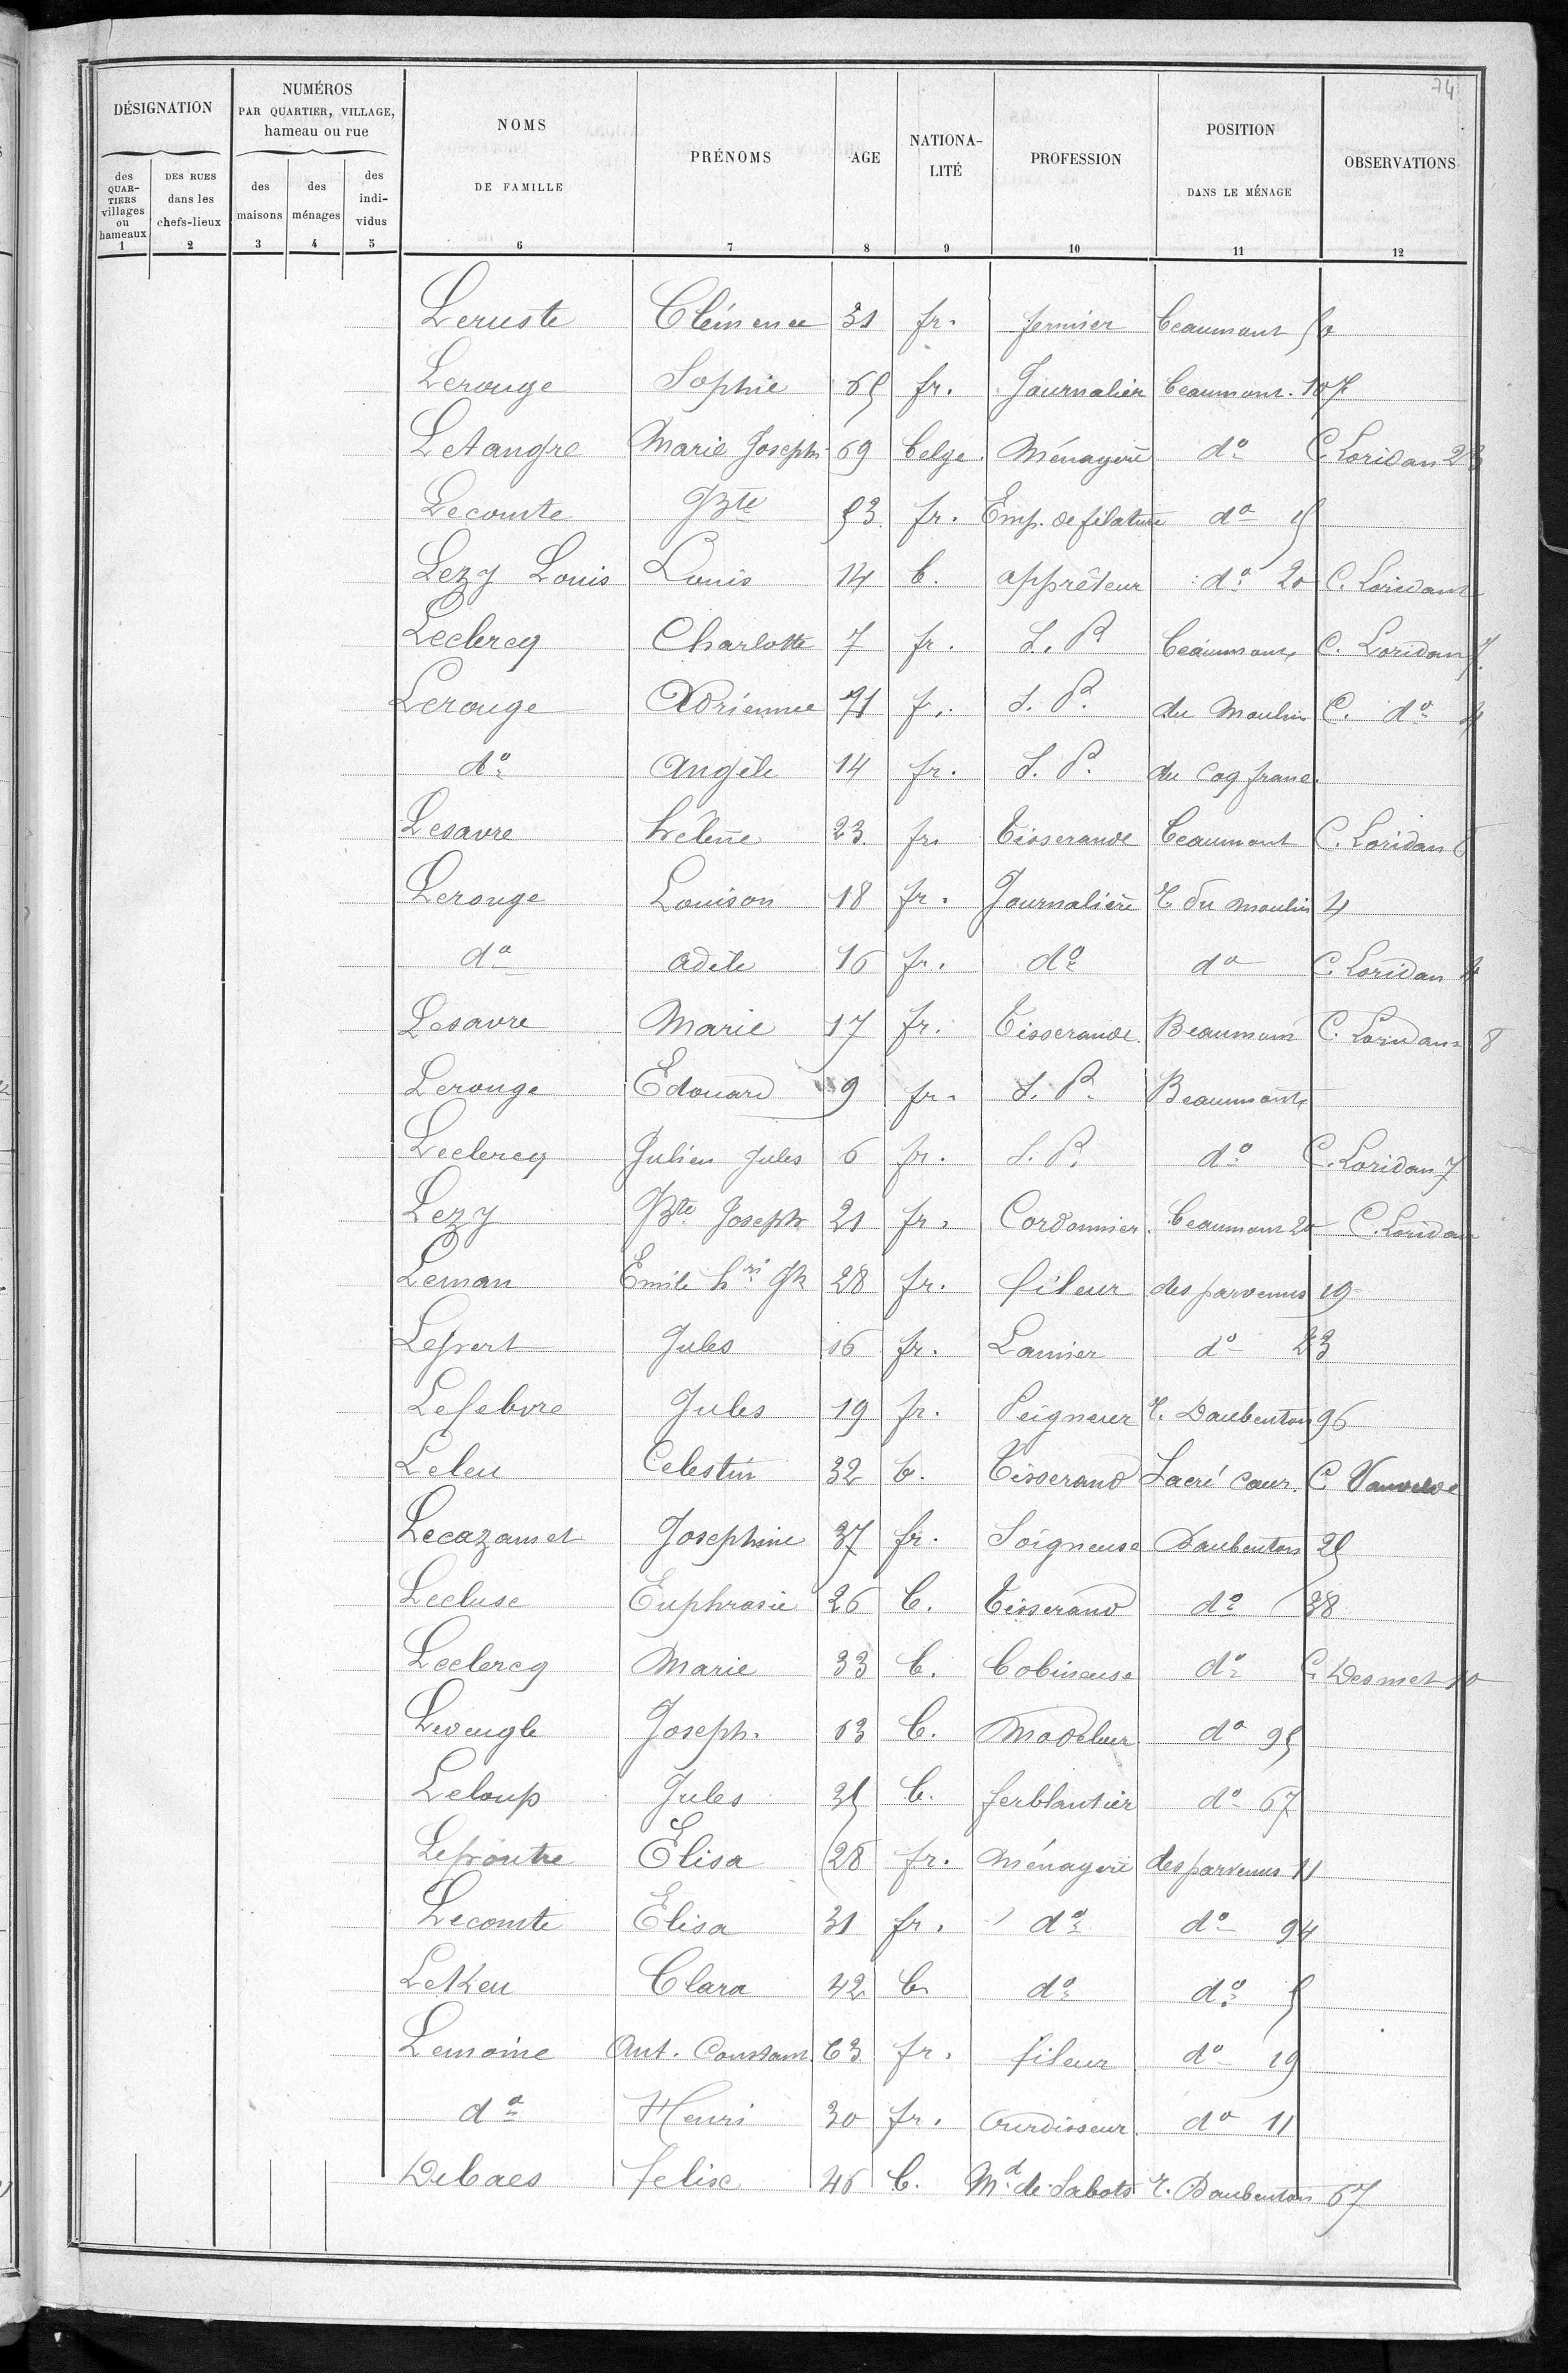 74
DÉSIGNATION
NUMÉROS
PAR QUARTIER, VILLAGE,
hameau ou rue
NOMS
DE FAMILLE
PRÉNOMS
AGE
NATIONA-
LITÉ
PROFESSION
POSITION
DANS LE MÉNAGE
OBSERVATIONS
des
QUAR-
TIERS
villages
ou
hameaux
DES RUES
dans les
chefs-lieux
des
maisons
des
ménages
des
indi-
vidus
1 2 3 4 5 6 7 8 9 10 11 12
Leruste Clémence 31 fr. fermier beaumont
Lerouge Sophie 65 fr. Journalier beaumont. 107
LeTangre Marie Joseph 69 belge. Ménagère do C. Loridan 23
Lecomte Bte 53 fr. Emp. de filature do 15
Lezy Louis Louis 14 b. apprêteur do 20 C. Loridan
Leclercq Charlotte 7 fr. S. P. beaumont C. Loridan 7.
Lerouge Adrienne 71 f. S. P. du Moulin C. do 4
do Angèle 14 fr. S. P. du Coq franc.
Lesavre hélène 23 fr. Tisserande beaumont C. Loridan
Lerouge Louison 18 fr. Journalière r. du moulin 4
do adèle 16 fr. do do C. Loridan 4
Lesavre Marie 17 fr. Tisserande. Beaumont C. Loridan 8
Lerouge Edouard 9 fr. S. P. Beaumont
Leclercq Julien Jules 6 fr. S. P. do C. Loridan 7
Lezy Bte Joseph 21 fr. Cordonnier. beaumont 20 C. Loridan
Leman Emile hri Jh 28 fr. fileur des parvenus 19
Lepert Jules 16 fr. Lamier do 23
Lefebvre Jules 19 fr. Peigneur r. Daubenton 96
Leleu Celestin 32 b. Tisserand Sacré Cœur. C
Lecazamet Josephine 37 fr. Soigneuse Daubenton 25
Lecluse Euphrasie 26 b. Tisserand do 38
Leclercq Marie 33 b. bobineuse do C. Desmet 10
Leveugle Joseph. 63 b. Modeleur do 95
Leloup Jules 35 b. ferblantier do 67
Leproutre Elisa 28 fr. Ménagère des parvenus 11
Lecomte Elisa 31 fr. do do 94
LeKeu Clara 42 b. do do 5
Lemoine Ant. Constant. 63 fr. fileur do 19
do Henri 30 fr. Ourdisseur. do 11
Debaes felix 46 b. Md de Sabots r. Daubenton 67